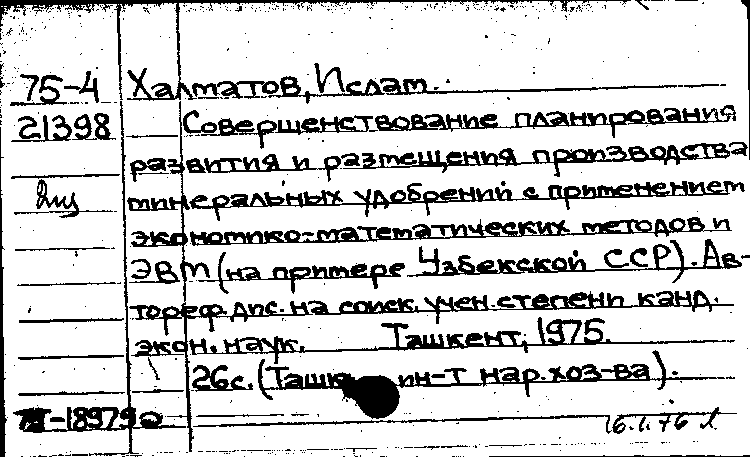 75-4 Халматов, Ислам.
21398 Совершенствование планирования
развития и размещения производства
минеральных удобрений с применением
экономико-математических методов и
ЭВМ (на примере Узбекской ССР). Ав-
тореф. дис. на соиск. учен. степени канд.
экон. наук. Ташкент, 1975.
26с. (Ташк. ин-т нар. хоз-ва).
-18979
16.1.76